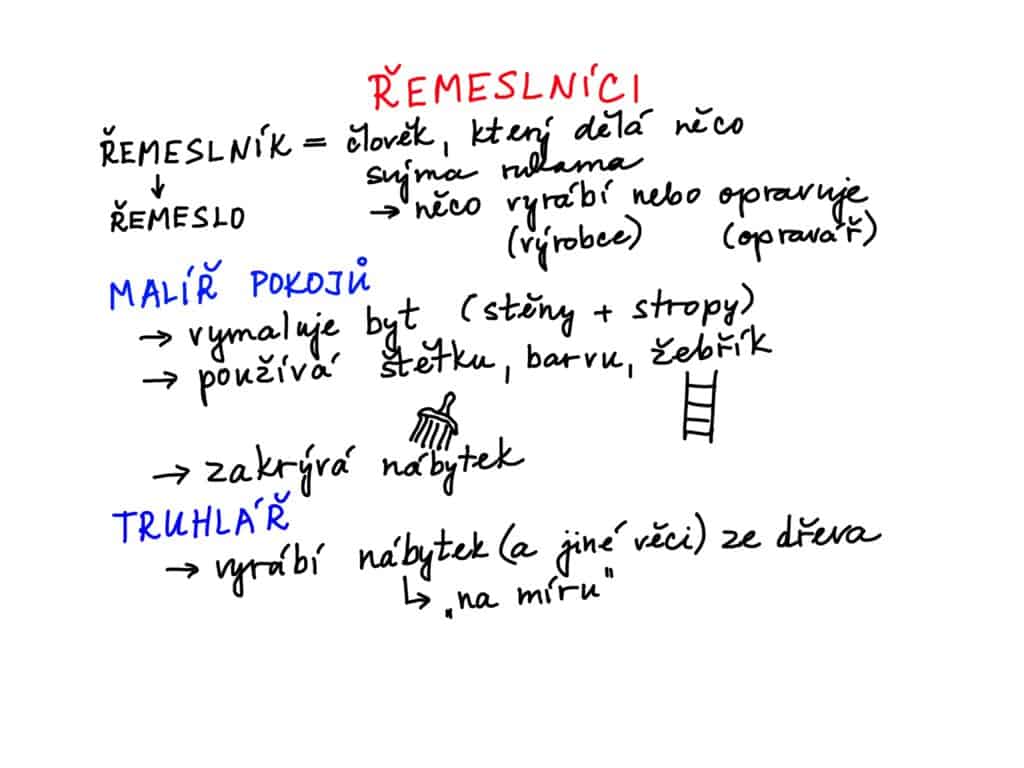 ŘEMESLNÍCI
ŘEMESLNÍK = člověk, který dělá něco
svýma rukama
↓
ŘEMESLO → něco vyrábí nebo opravuje
(výrobce) (opravář)
MALÍŘ POKOJŮ
→ vymaluje byt (stěny + stropy)
→ používá štětku, barvu, žebřík
→ zakrývá nábytek
TRUHLÁŘ
→ vyrábí nábytek (a jiné věci) ze dřeva
↳ „na míru"